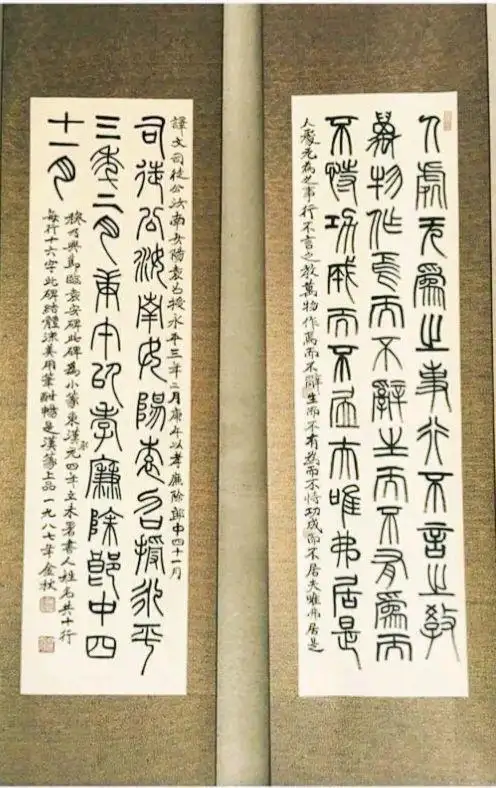 人處无爲之事行不言之教
萬物作焉而不辭生而不有爲而
不恃功成而不居夫唯弗居是
人處无為之事行不言之教萬物作焉而不辭生而不有為而不恃功成而不居夫唯弗居是
譯文司徒公汝南女陽袁召授永平三年二月庚午以孝廉除郎中四十一月
司徒公汝南女陽袁召授永平
三年二月庚午以孝廉除郎中四
十一月
臨袁安碑此碑為小篆東漢元四年立未署書人姓名共十行
每行十六字此碑結體渾美用筆酣暢是漢篆上品一九八七年金秋